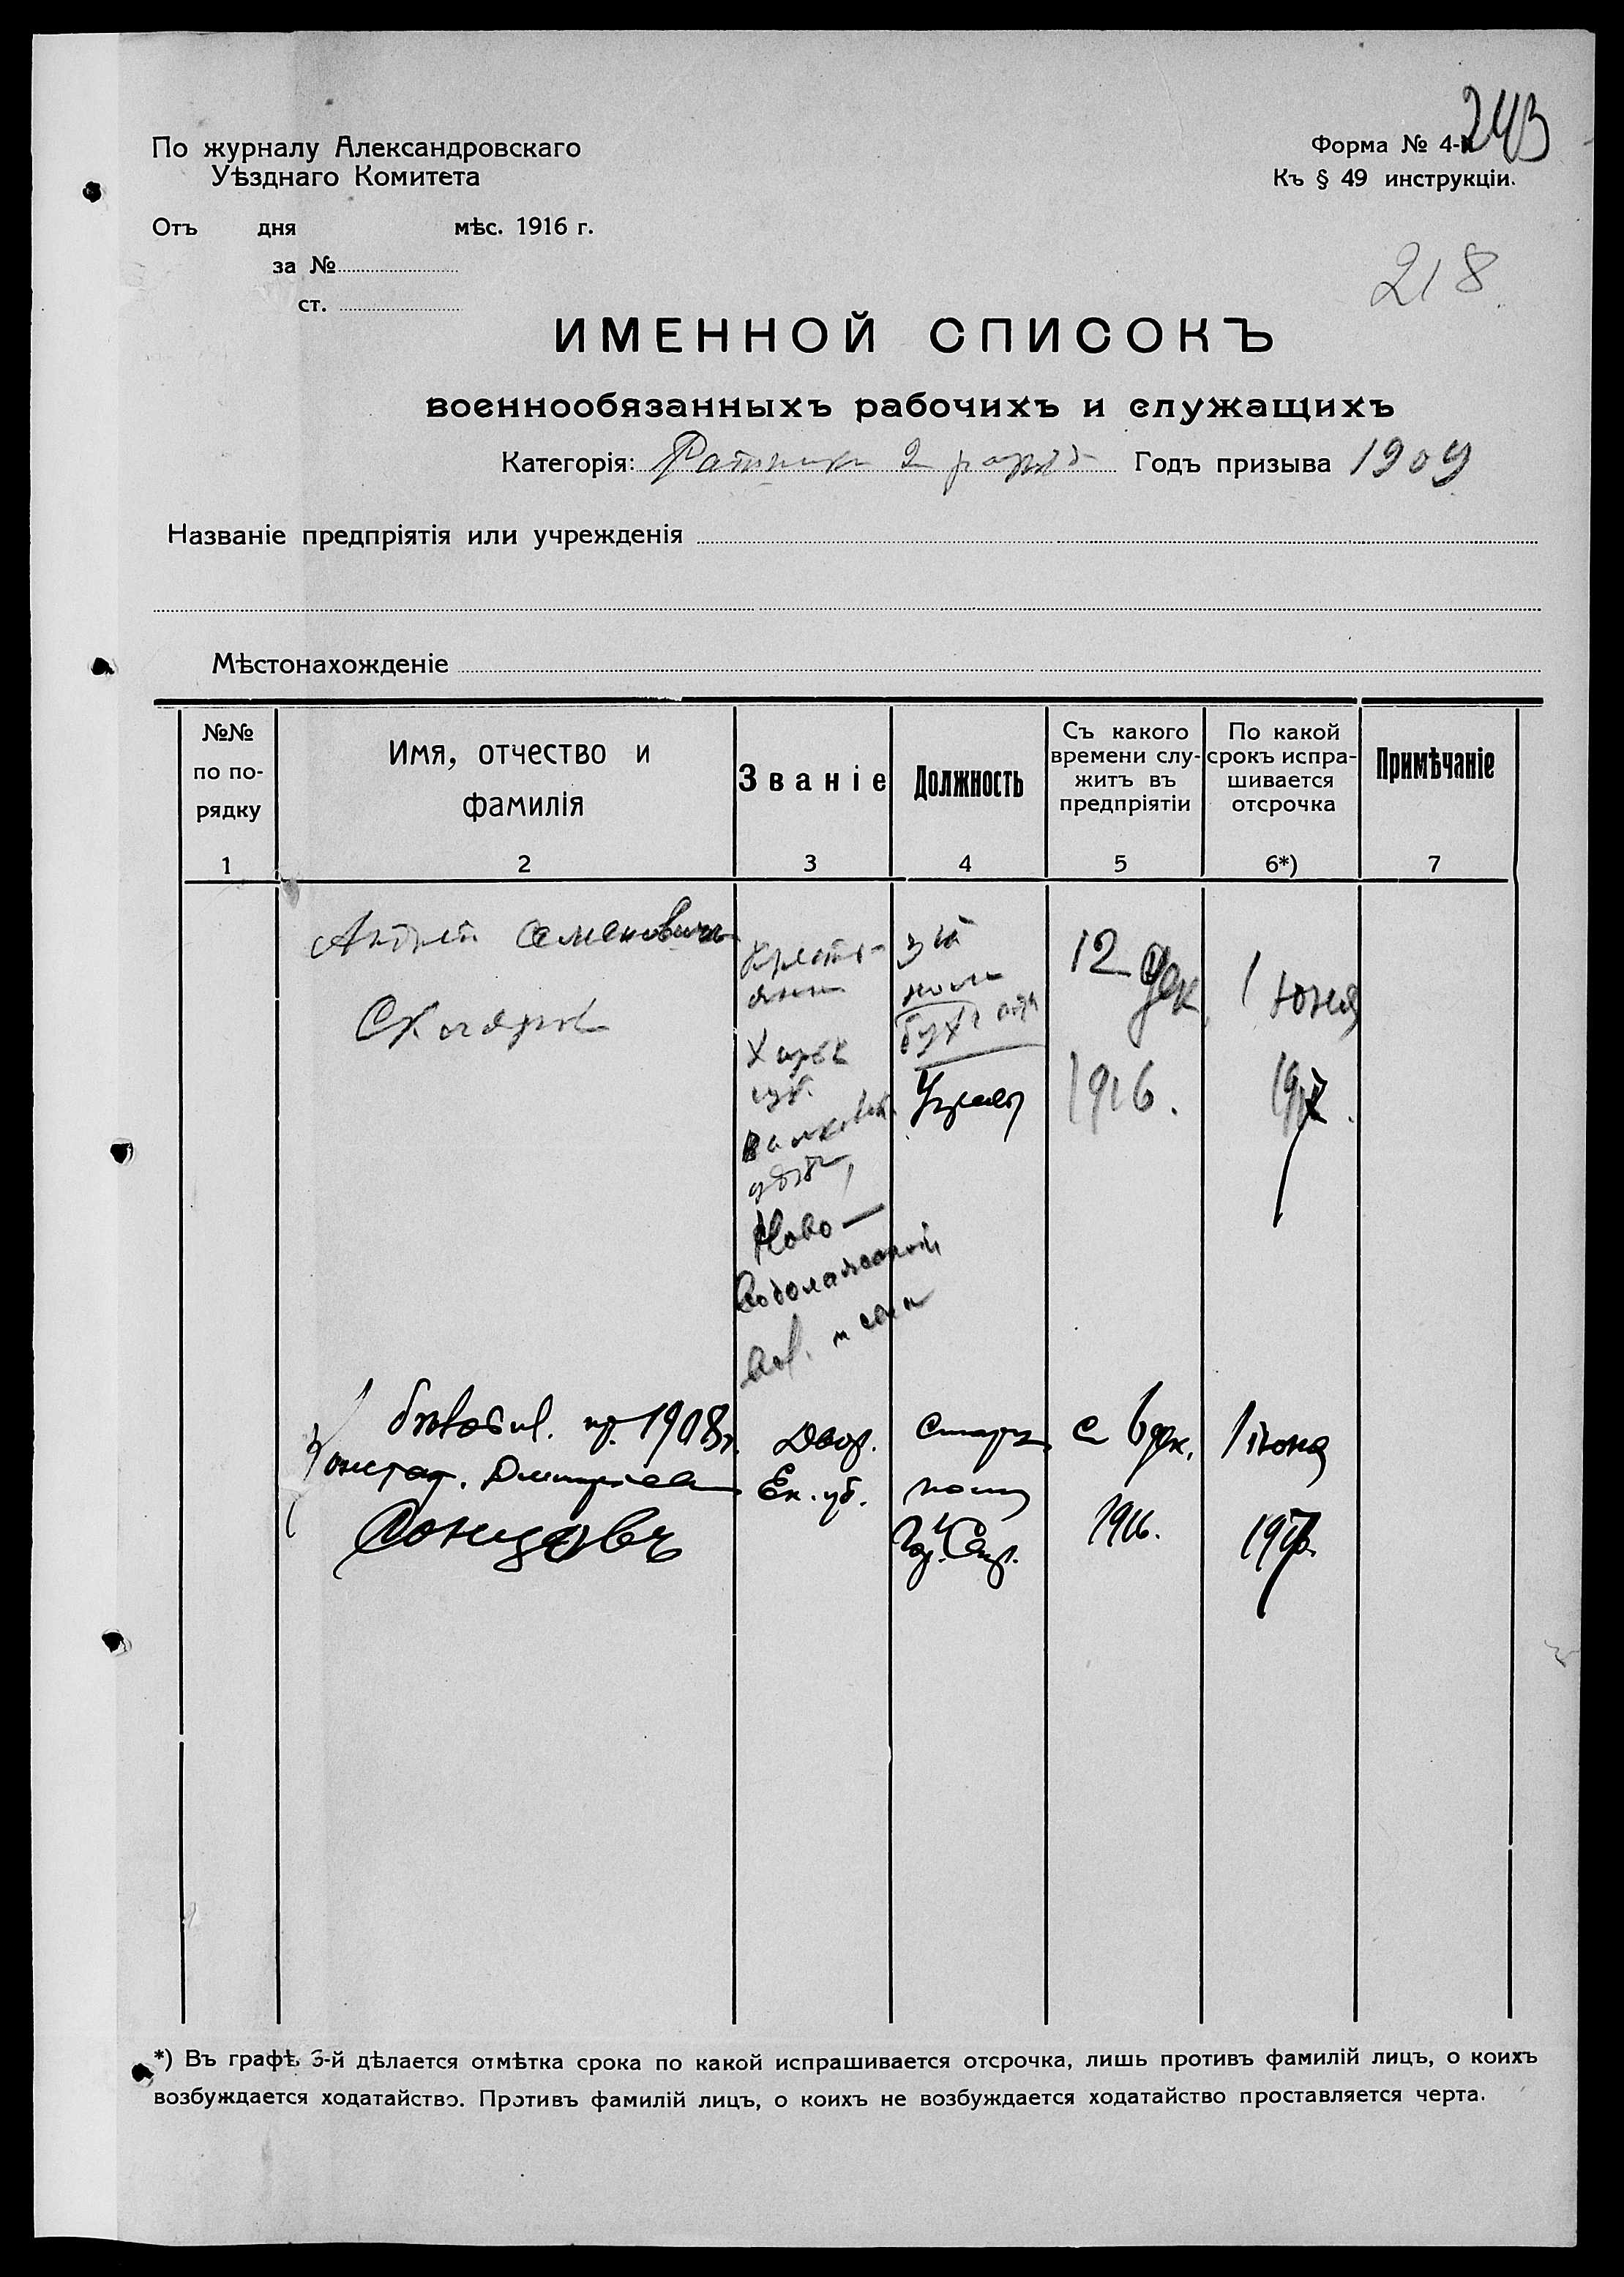 243
По журналу Александровскаго
Уѣзднаго Комитета
Форма № 4-
Къ § 49 инструкціи.
Отъ дня мѣс. 1916 г.
за №
ст.
218
ИМЕННОЙ СПИСОКЪ
военнообязанныхъ рабочихъ и служащихъ
Категорія: Ратники 2 разряд Годъ призыва 1909
Названіе предпріятія или учрежденія
Мѣстонахожденіе
№№ по по-рядку
Имя, отчество и фамилія
Званіе
Должность
Съ какого времени слу-житъ въ предпріятіи
По какой срокъ испра-шивается отсрочка
Примѣчаніе
1 2 3 4 5 6*) 7
Андрей Семенович
Скляров
Кресть-
янин
Харьк
губ.
Валковск.
уѣзда,
Ново-
Водолажской
вол. и села
пом
бухг
Управы
12 дек.
1916.
1 юня
1917.
пр. 1908 г.
Констан. Дмитриев
Донцовъ
Двор.
Ек. губ.
Старш.
пом
с 6 дек.
1916.
1 іюня
1917.
*) Въ графѣ 6-й дѣлается отмѣтка срока по какой испрашивается отсрочка, лишь противъ фамилій лицъ, о коихъ
возбуждается ходатайство. Противъ фамилій лицъ, о коихъ не возбуждается ходатайство проставляется черта.